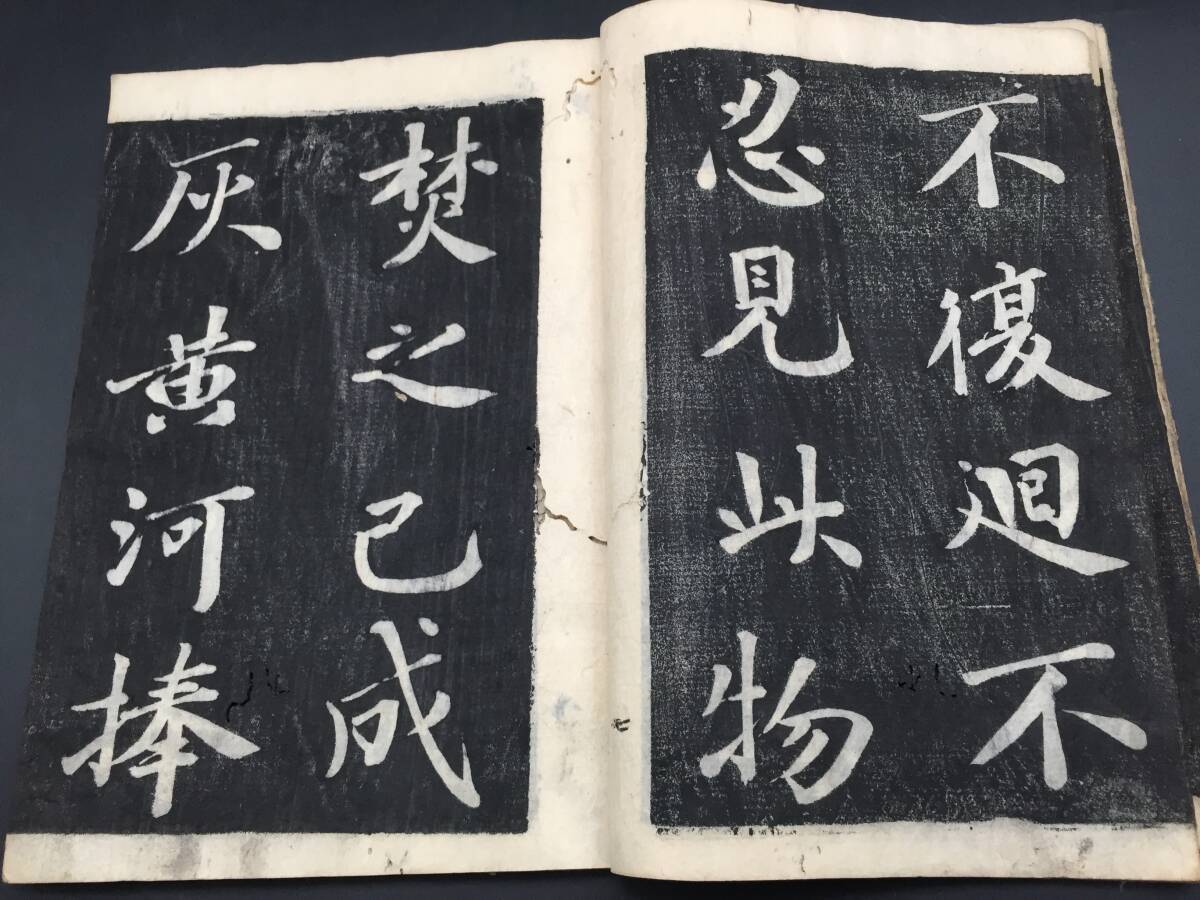 不復迴不
忍見此物
焚之已成
灰黄河捧